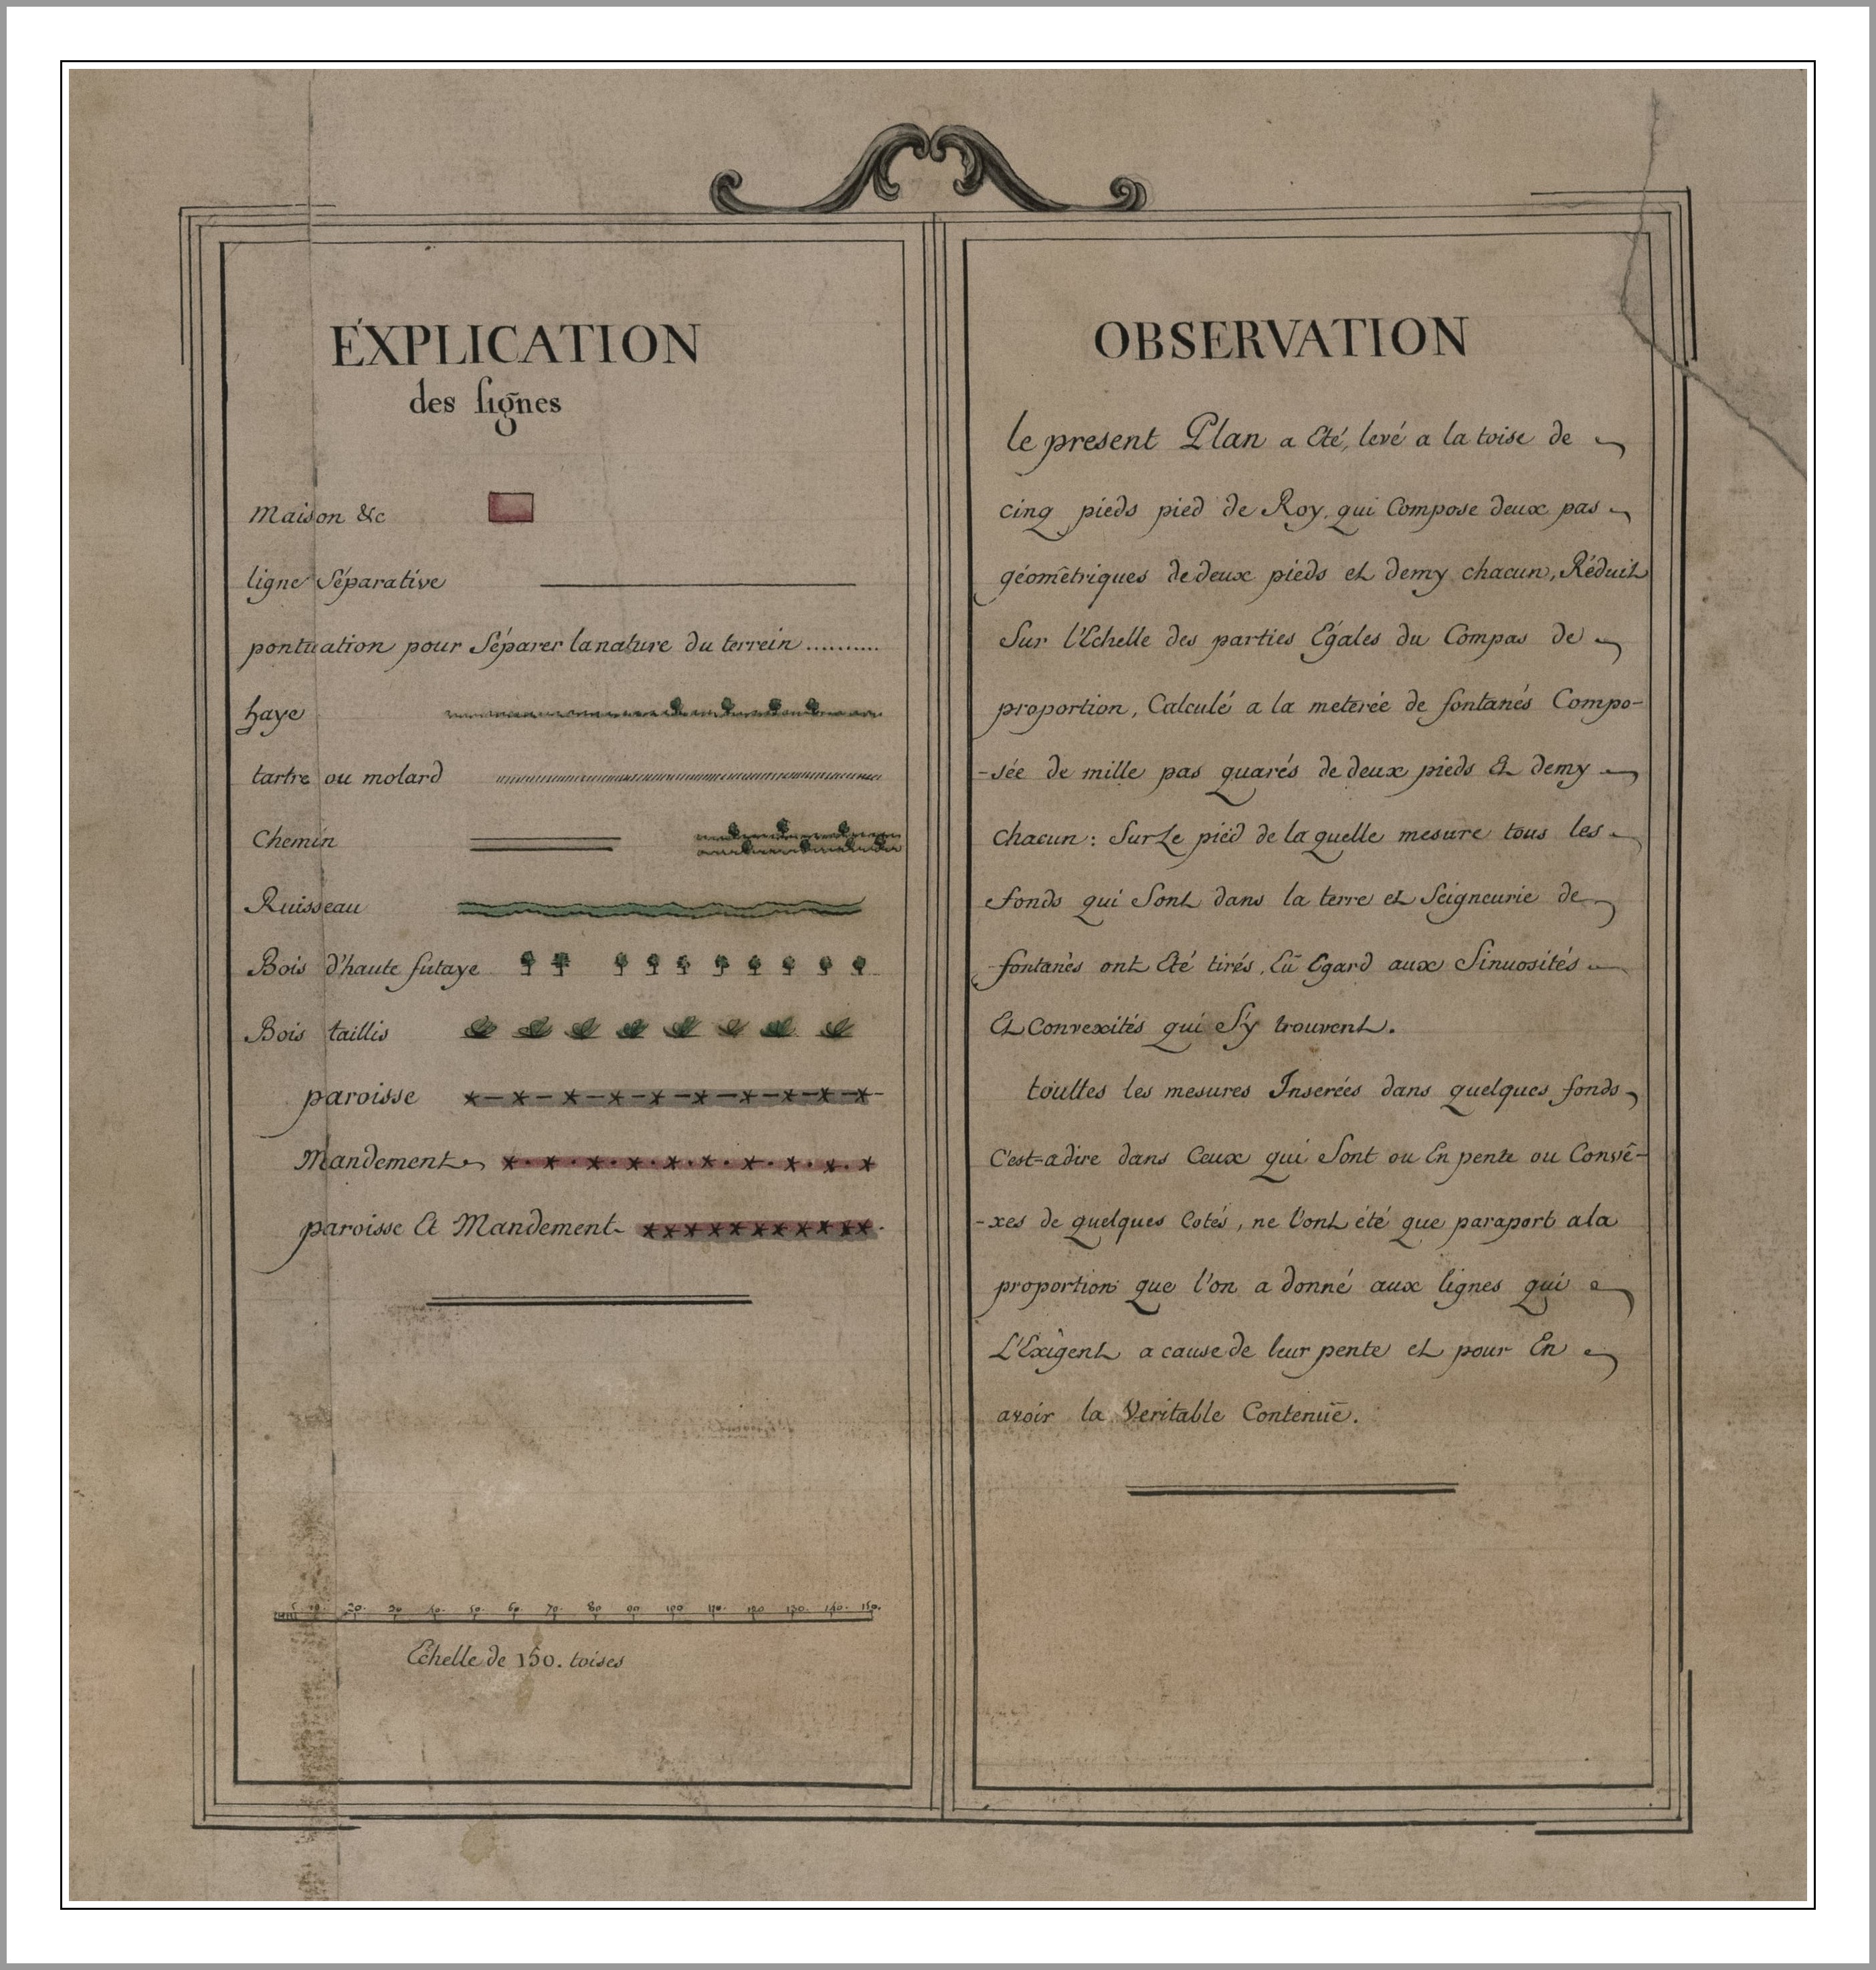 EXPLICATION
des lignes
Maison &c
ligne Séparative
pontuation pour Séparer la nature du terrein ..........
haye
tartre ou molard
Chemin
Ruisseau
Bois d'haute futaye
Bois taillis
paroisse
Mandement
paroisse Et Mandement
10. 20. 30 40. 50. 60. 70. 80 90 100 110. 120 130. 140. 150.
Echelle de 150. toises
OBSERVATION
le present Plan a Eté, levé a la toise de
cinq pieds pied de Roy, qui Compose deux pas
géometriques de deux pieds et demy chacun, Réduit
Sur l'Echelle des parties Egales du Compas de
proportion, Calculé a la meterée de fontanés Compo-
-sée de mille pas quarés de deux pieds Et demy
Chacun : Sur Le pied de la quelle mesure tous les
fonds qui Sont dans la terre et Seigneurie de
fontanès ont Eté tirés, Eü Egard aux Sinuosités
Et Convexités qui S'y trouvent.
touttes les mesures Inserées dans quelques fonds
C'est=adire dans Ceux qui Sont ou En pente ou Convê-
-xes de quelques Cotés, ne l'ont été que paraport a la
proportion que l'on a donné aux lignes qui
L'Exigent a cause de leur pente et pour En
avoir la Veritable Contenüe.